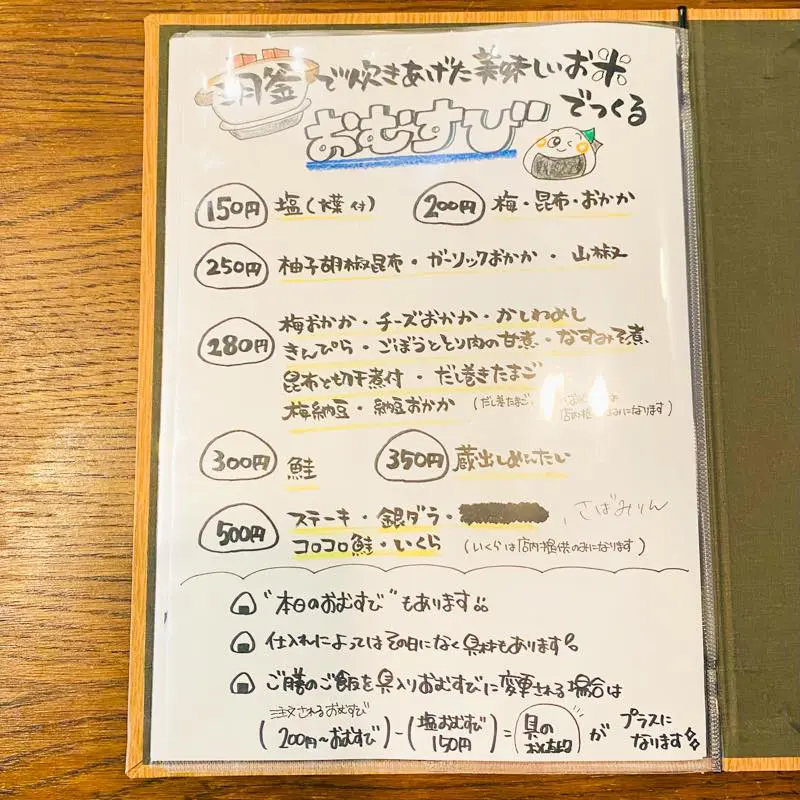 羽釜で炊きあげた美味しいお米
でつくる
おむすび
150円 塩(大葉付) 200円 梅・昆布・おかか
250円 柚子胡椒昆布・ガーリックおかか・山椒
280円 梅おかか・チーズおかか・かしわめし
きんぴら・ごぼうととり肉の甘煮・なすみそ煮
昆布と切干煮付・だし巻きたまご
梅納豆・納豆おかか (だし巻たまご、
店内提 みになります)
300円 鮭 350円 蔵出しめんたい
500円 ステーキ・銀ダラ・ 、さばみりん
コロコロ鮭・いくら (いくらは店内提供のみになります)
"本日のおむすび"もあります
仕入れによってはその日になく具材もあります
ご膳のご飯を具入りおむすびに変更される場合は
注文されるおむすび
(200円~おむすび)-(塩おむすび 150円)=具の がプラスになります